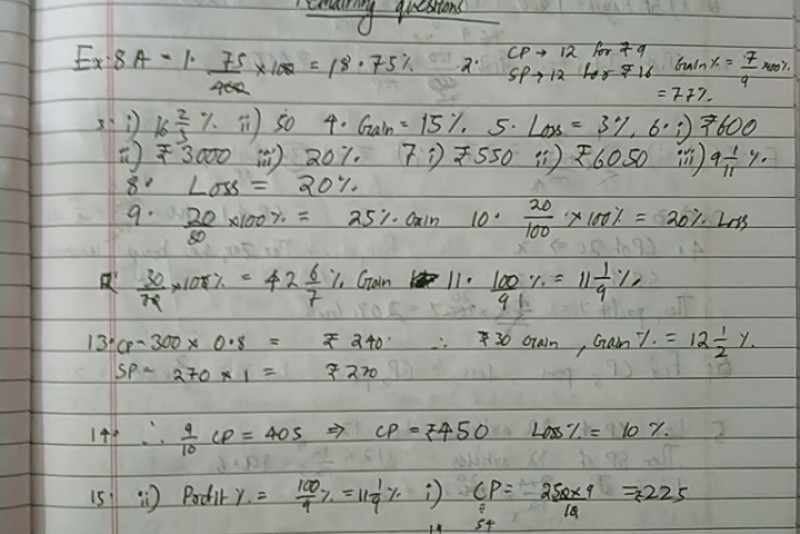 Remaining questions
Ex. 8A - 1. 75/400 × 100 = 18.75% 2. CP → 12 for ₹9 Gain% = 7/9 × 100%
SP → 12 for ₹16 = 77%
3. i) 16 2/3 % ii) 50 4. Gain = 15% 5. Loss = 3% 6. i) ₹600
ii) ₹3000 iii) 20% 7 i) ₹550 ii) ₹6050 iii) 9 1/11 %
8. Loss = 20%
9. 20/80 × 100% = 25% Gain 10. 20/100 × 100% = 20% Loss
12 30/70 × 100% = 42 6/7 % Gain 11. 100/9 % = 11 1/9 %
13. CP - 300 × 0.8 = ₹240 ∴ ₹30 Gain, Gain% = 12 1/2 %
SP - 270 × 1 = ₹270
14. ∴ 9/10 CP = 405 ⇒ CP = ₹450 Loss% = 10%
15. ii) Profit% = 100/9 % = 11 1/9 % i) CP = 250×9/10 = ₹225